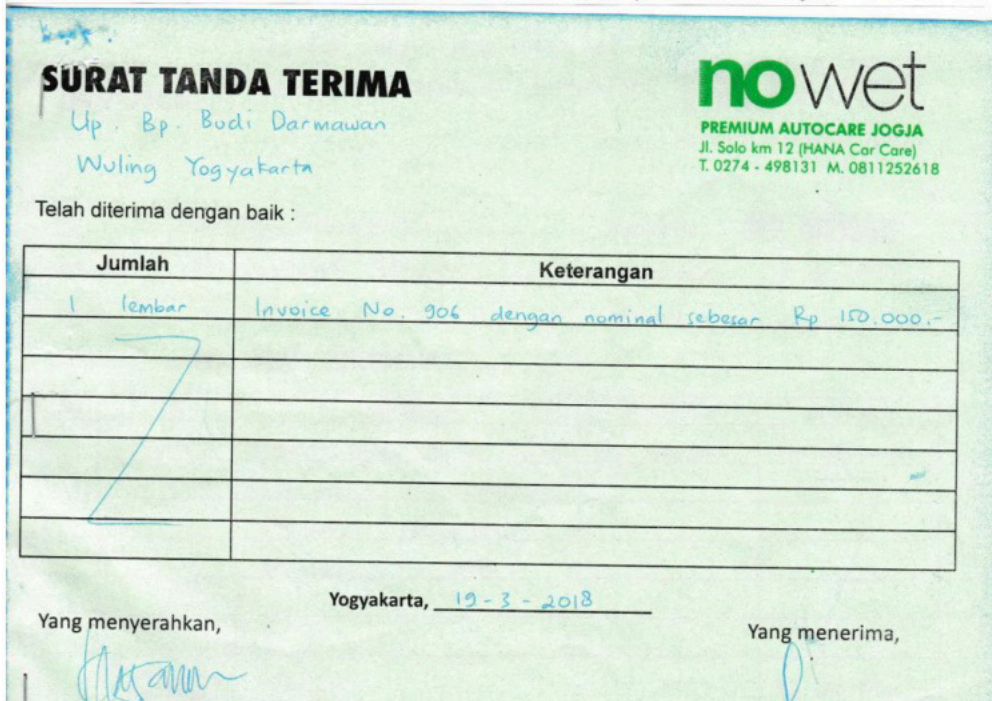 SURAT TANDA TERIMA
Up. Bp. Budi Darmawan
Wuling Yogyakarta
nowet
PREMIUM AUTOCARE JOGJA
Jl. Solo km 12 (HANA Car Care)
T. 0274 - 498131 M. 0811252618
Telah diterima dengan baik :
Jumlah Keterangan
1 lembar Invoice No. 906 dengan nominal sebesar Rp 150.000.-
Yogyakarta, 19-3-2018
Yang menyerahkan, Yang menerima,